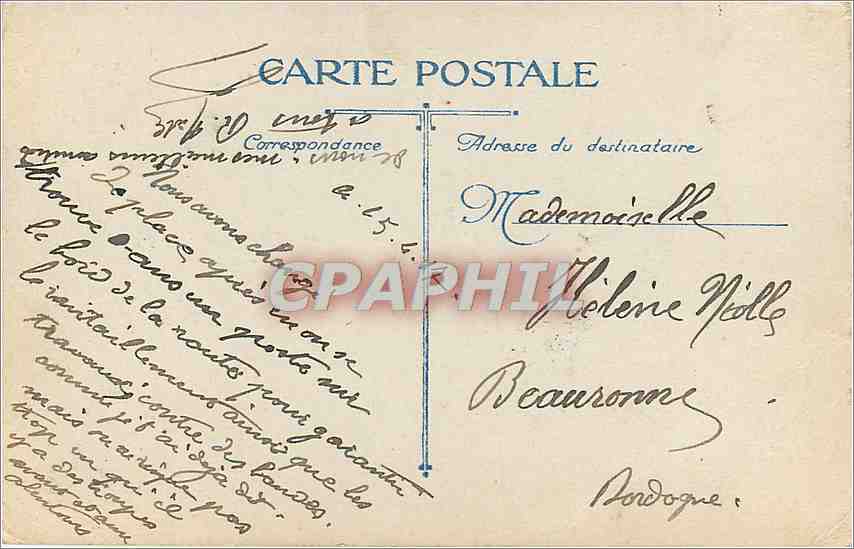 CARTE POSTALE
Correspondance
Adresse du destinataire
Mademoiselle
Hélène Niolle
Beauronne
Dordogne.
CPAPHIL
Nous avons changé
de place, après en on se
trouve dans un poste sur
le bord de la route pour garantir
le ravitaillement ainsi que les
travaux contre des bandes.
comme je t'ai déjà dit
mais on ne risque pas
trop vu qu'il
y a des troupes
avant
alentours
de nous. mes meilleurs amitiés
a tous